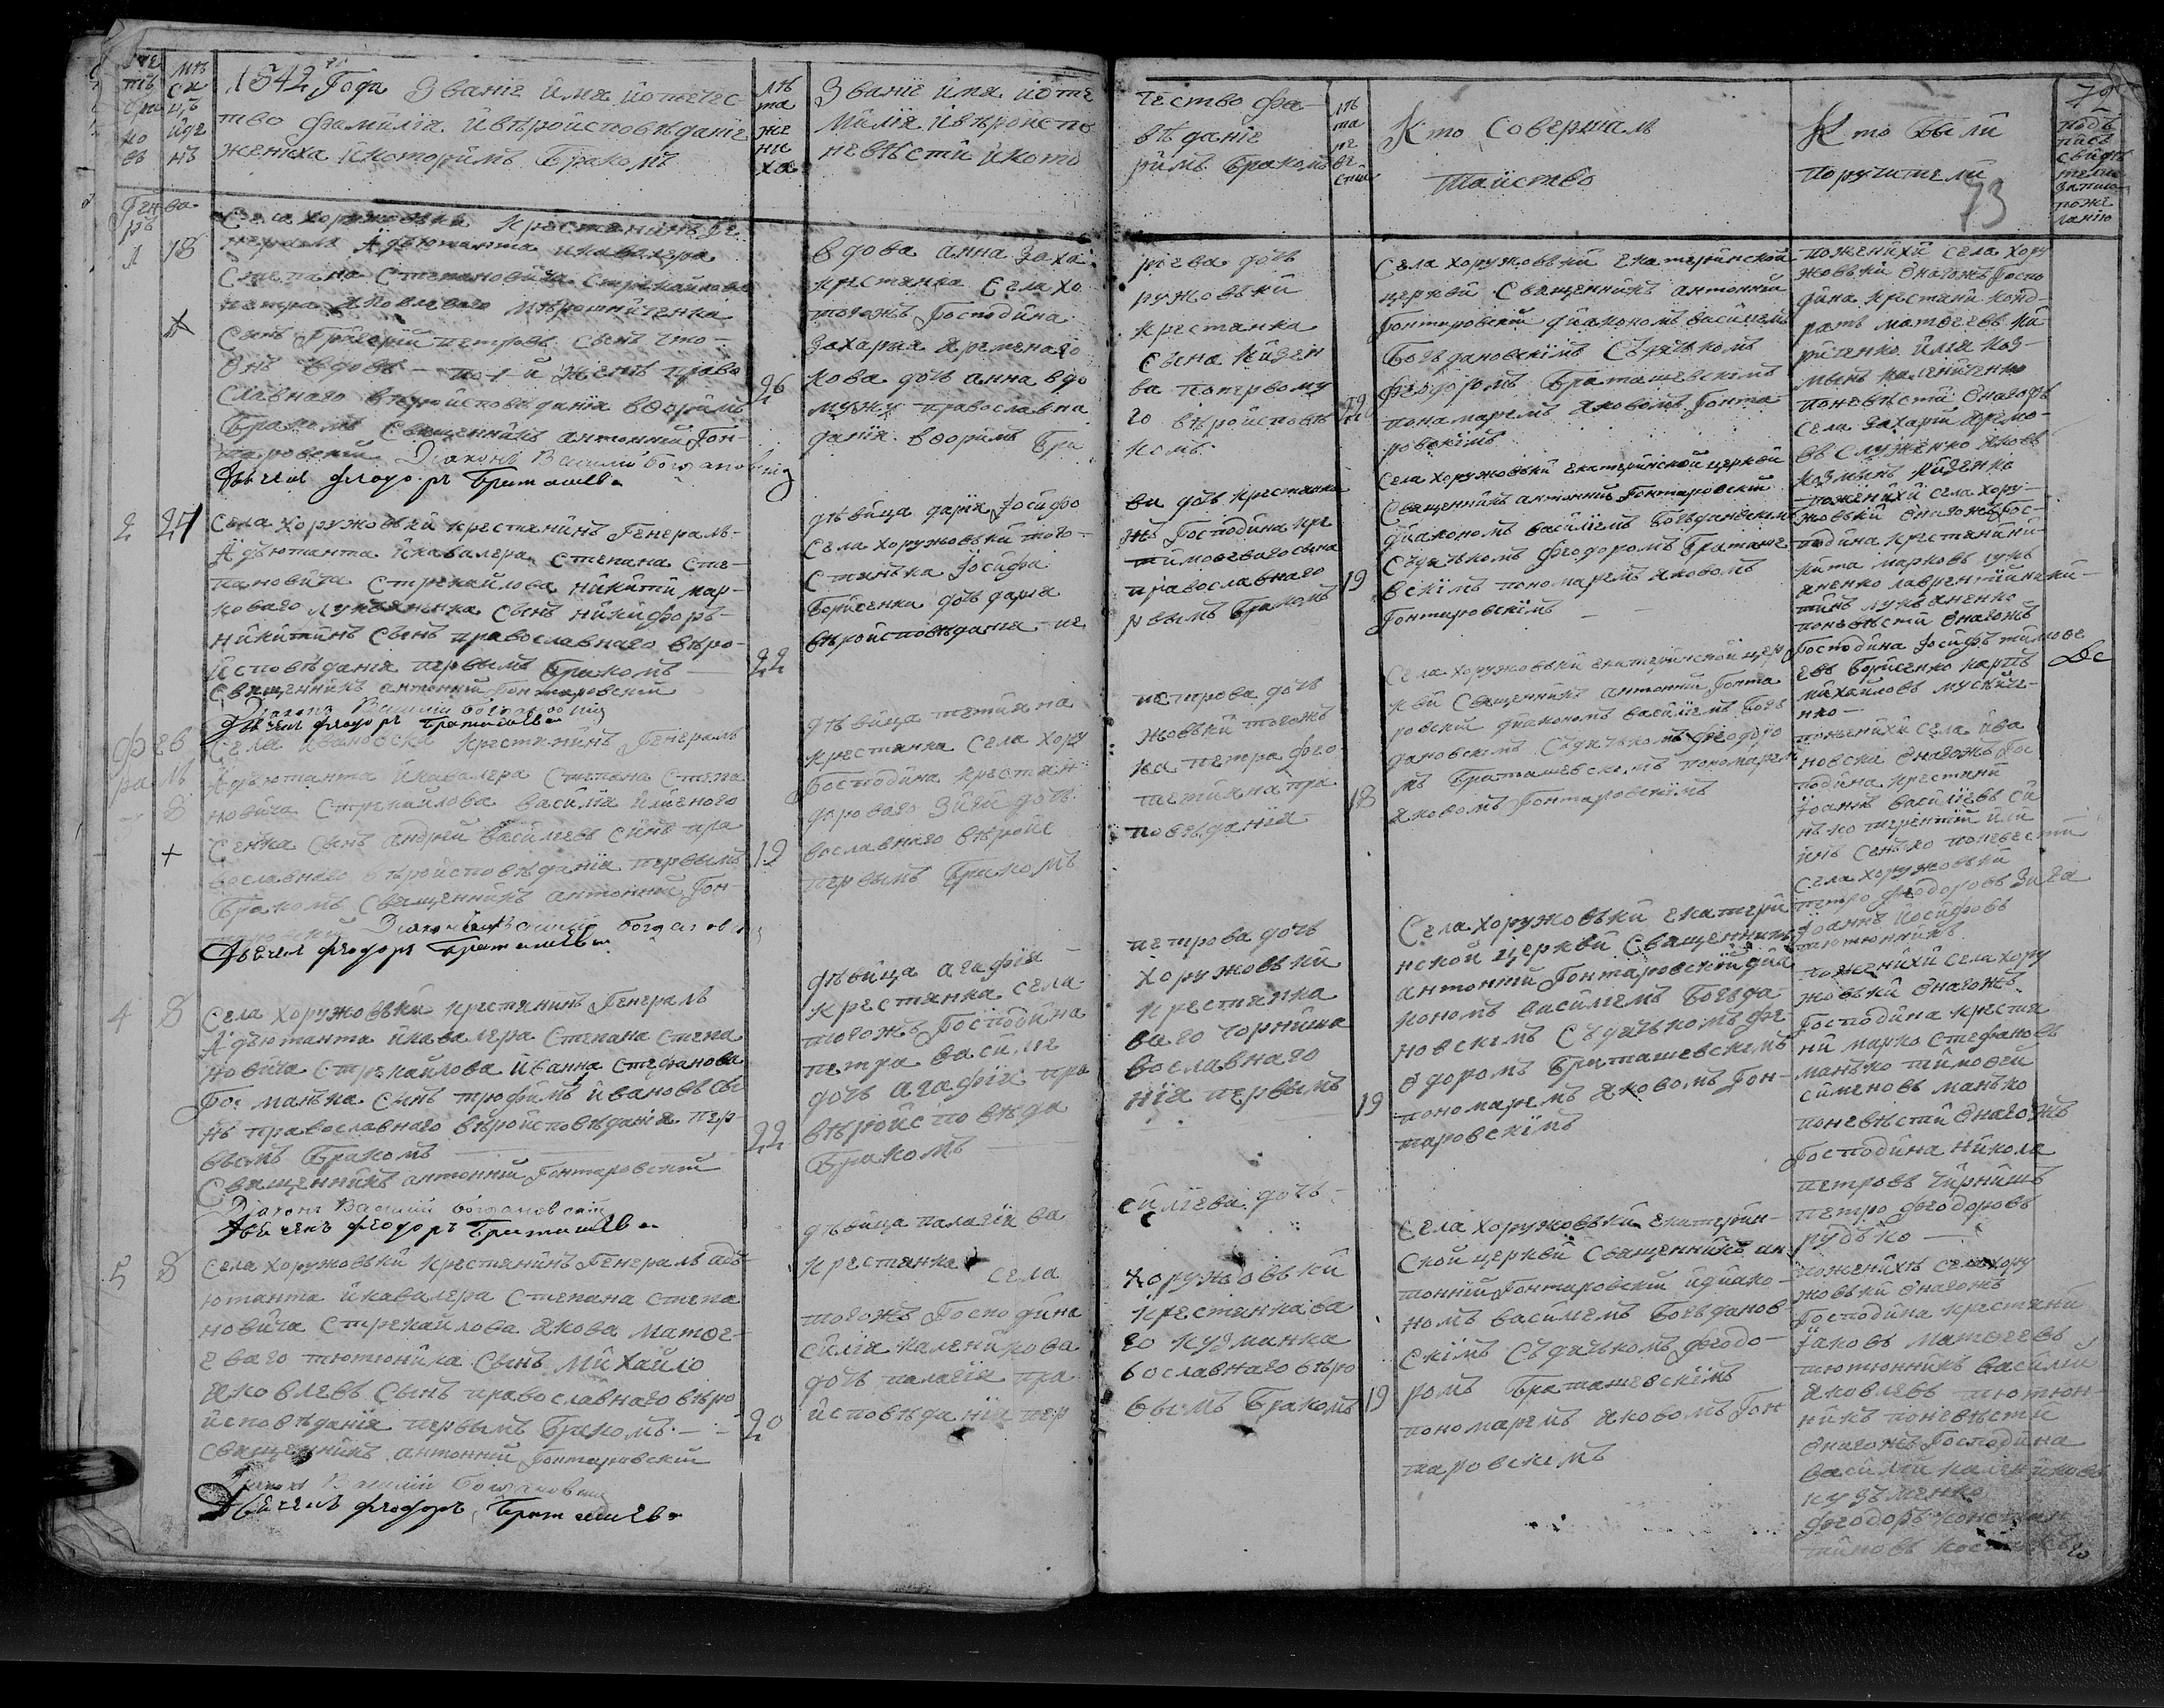 1842 го Года Званіе имя и отечес
тво фамилія и вѣроисповѣданіе
жениха и которимъ бракомъ
лѣ
та
же
ни
ха
Званіе имя и оте
милія и вѣроиспо
невѣсти и кото
чество фа-
вѣданіе
римъ бракомъ
лѣ
та
не
ве
сти
Кто Совершалъ
Таинство
Кто Были
Поручители
73
72
подъ
писъ
свидѣ
телей
запис
по же
ланію
Генва
рь
1 18
Села хоружовьки крестянинъ Ге
нерала Адъютанта и кавалера
Степана Степановича Стрекайлова
петра Яковлеваго мѣрошниченка
Сынъ Григорий петровъ сынъ что-
онъ вдовъ - по 1-й женѣ право
славнаго вѣроисповѣданія вторимъ
бракомъ Священникъ антонний Гон-
таровский Діаконъ Василий Богдановский
Дьячекъ феодоръ Браташев
26
вдова анна Заха
крестянка Села хо
тогожъ Господина
Захарія Яременаго
кова дочь анна вдо
мужу православна
данія вторимъ Бра
ріева дочь
ружовьки
крестянка
Сина Кизен
ва попервому
го вѣроисповѣ
комъ
22
Села хоружовьки Екатеринской
церкви Священникъ антонний
Гонтаровский диакономъ василиемъ
Богдановскимъ Съ дячькомъ
феодоромъ Браташевскимъ
пономаремъ Яковомъ Гонта
ровскимъ
поженихи села хору
жовьки онагожъ Госпо
дина крестяни конд-
ратъ матфеевъ Ки
риченко илия Коз-
минъ каленченко
поневѣсти онагожъ
села Захарий Яремо-
въ Служенко Яковъ
козминъ Кизенко
2 24
Села хоружовьки крестянинъ Генералъ-
Адъютанта и кавалера Степана Сте-
пановича Стрекайлова никити мар-
коваго лукяненка сынъ никифоръ-
никитинъ сынъ православнаго вѣро-
исповѣданія первымъ бракомъ
Священникъ антонний Гонтаровский
Діаконъ Василий Богдановский
Дьячекъ феодоръ Браташев
22
дѣвица дария Иосифо
Села хоружовьки того-
стянька Иосифа
Борисенка дочь дария
вѣроисповѣдания пе
ва дочь крестянка
жъ Господина кре
тимофеваго сына
православнаго
рвымъ бракомъ
19
Села хоружовьки Екатеринской церкви
Священникъ антонний Гонтаровский
диакономъ василиемъ Богдановскимъ
Съ дячькомъ феодоромъ Браташе
вскимъ пономаремъ Яковомъ
Гонтаровскимъ
- поженихи села хору-
жовьки онагожъ Гос-
подина крестяни ни-
кита марковъ лукъ
яненко лаврентий ники-
тинъ лукяненко
поневѣсти онагожъ
Господина Иосифъ тимофе
евъ Борисенко карпъ
михайловъ мускиче-
нко -
фев
раль
8
Села ивановска крестянинъ Генералъ
Адъютанта и кавалера Степана Степа
новича Стрекайлова василия илиенаго
Сенка сынъ андрей василиевъ синъ пра
вославнаго вѣроисповѣданія первымъ
бракомъ Священникъ антонний Гон-
таровский Діаконъ Василий Богдановский
Дьячекъ феодоръ Браташев
19
дѣвица тетияна
крестянка Села хору
Господина крестян
дороваго Зиги дочь
вославнаго вѣроис
первымъ бракомъ
петрова дочь
жовьки тогожъ
ка петра фео
тетияна пра
повѣдания
18
Села хоружовьки Екатеринской цер
кви Священникъ антонний Гонта
ровский диакономъ василиемъ Богъ
дановскимъ Съ дячькомъ феодоро
мъ Браташевскимъ пономаремъ
Яковомъ Гонтаровскимъ
поженихи села ива
новска онагожъ Гос
подина крестяни
Иоаннъ василиевъ си
нько терентий или
инъ Сенько поневести
Села хоружовьки
петро феодоровъ Зига
Иоаннъ Иосифовъ
тютюнникъ
4 8
Села хоружовьки крестянинъ Генералъ
Адъютанта и кавалера Степана Степа
новича Стрекайлова ивана стефанова
го манька сынъ трофимъ ивановъ сы
нъ православнаго вѣроисповѣдания пер-
вымъ бракомъ
Священникъ антонний Гонтаровский
Діаконъ Василий Богдановский
Дьячекъ феодоръ Браташев
22
дѣвица агафия
крестянка села
тогожъ Господина
петра василие
дочь агафия пра
вѣроисповѣда
бракомъ
петрова дочь
хоружовьки
крестянка
ваго чорниша
вославнаго
ния первымъ
19
Села хоружовьки Екатери
нской церкви Священникъ
антонний Гонтаровский диа
кономъ василиемъ Богда-
новскимъ Съ дячькомъ фе-
одоромъ Браташевскимъ
пономаремъ Яковомъ Гон-
таровскимъ
поженихи села хору
жовьки онагожъ
Господина крестя
ни марко стефановъ
манько тимофей
сименовъ манько
поневѣсти онагожъ
Господина никола
петровъ Чирнишъ
петро феодоровъ
рудько -
5 8
Села хоружовьки крестянинъ Генералъ адъ-
ютанта и кавалера Степана Степа
новича Стрекайлова Якова матфе-
еваго тютюника сынъ михайло
Яковлевъ сынъ православнаго вѣро
исповѣданія первымъ бракомъ -
Священникъ антонний Гонтаровский
Діаконъ Василий Богдановский
Дьячекъ феодоръ Браташев
20
дѣвица палагия ва
крестянка села
тогожъ Господина
силия каленикова
дочь палагия пра
исповѣдания пер
силиева дочь
хоружовьки
крестянка ва
го кузминка
вославнаго вѣро
вымъ бракомъ
19
Села хоружовьки Екатерин-
ской церкви Священникъ ан
тонний Гонтаровский и диако-
номъ василиемъ Богъданов
скимъ Съ дячькомъ феодо-
ромъ Браташевскимъ
пономаремъ Яковомъ Гон
таровскимъ
поженихѣ села хору
жовьки онагожъ
Господина крестяни
Иаковъ матфеевъ
тютюнникъ василий
Яковлевъ тютюн-
никъ поневѣсти
онагожъ Господина
василий калениковъ
кузьменко
феодоръ констан
тиновъ